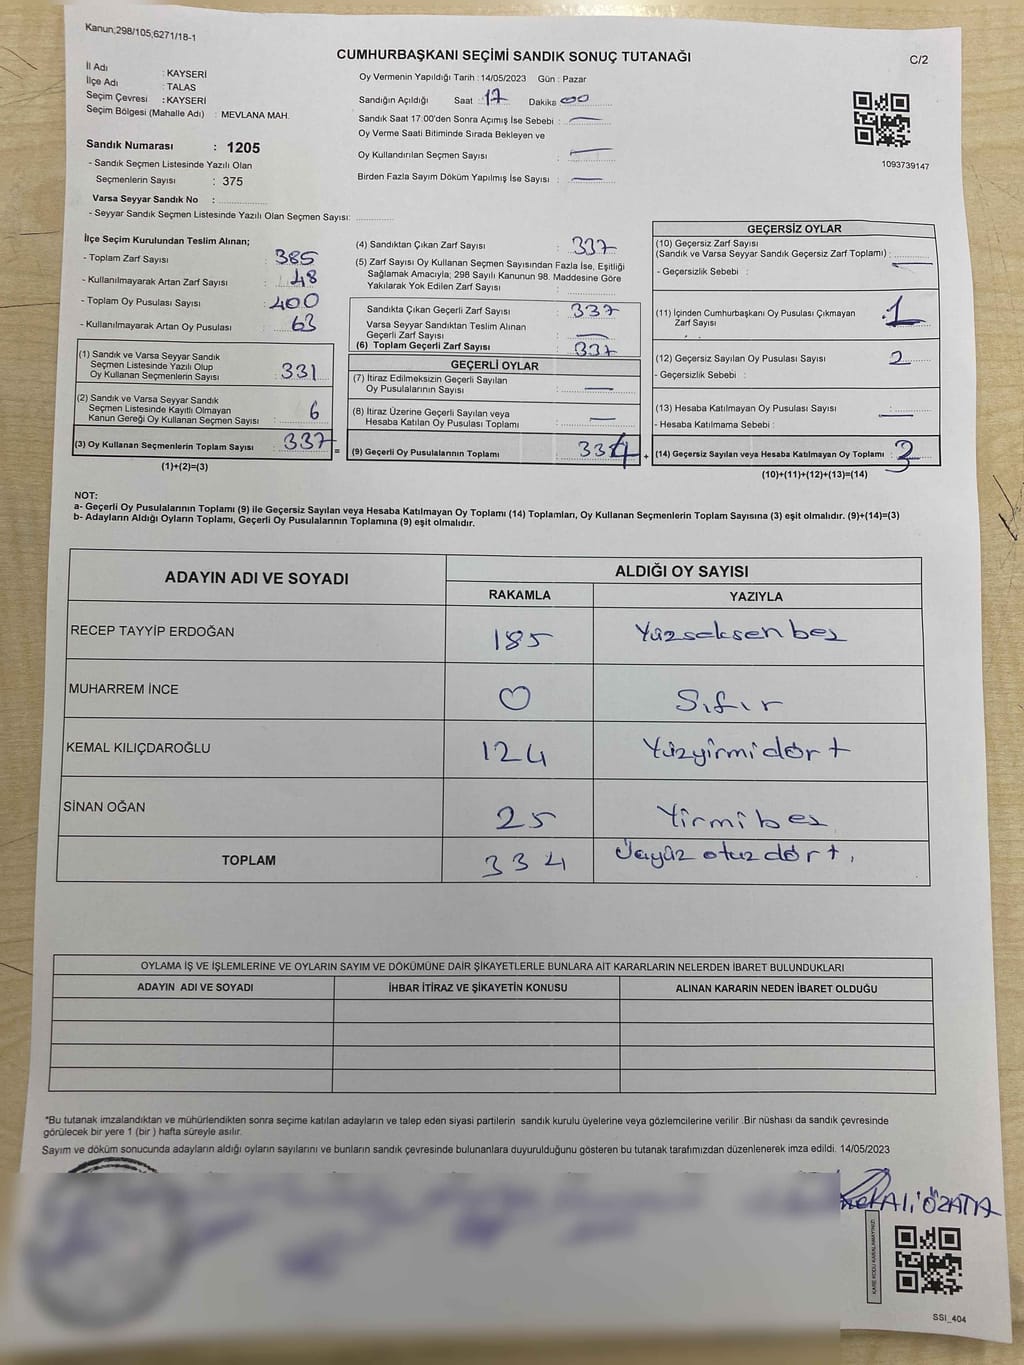 Kanun;298/105;6271/18-1
CUMHURBAŞKANI SEÇİMİ SANDIK SONUÇ TUTANAĞI
C/2
İl Adı : KAYSERİ
İlçe Adı : TALAS
Seçim Çevresi : KAYSERİ
Seçim Bölgesi (Mahalle Adı) : MEVLANA MAH.
Oy Vermenin Yapıldığı Tarih : 14/05/2023 Gün : Pazar
Sandığın Açıldığı Saat : 17 Dakika 00
Sandık Saat 17:00'den Sonra Açımış İse Sebebi : —
Oy Verme Saati Bitiminde Sırada Bekleyen ve
Oy Kullandırılan Seçmen Sayısı : —
Birden Fazla Sayım Döküm Yapılmış İse Sayısı : —
1093739147
Sandık Numarası : 1205
- Sandık Seçmen Listesinde Yazılı Olan
Seçmenlerin Sayısı : 375
Varsa Seyyar Sandık No :
- Seyyar Sandık Seçmen Listesinde Yazılı Olan Seçmen Sayısı:
İlçe Seçim Kurulundan Teslim Alınan;
- Toplam Zarf Sayısı : 385
- Kullanılmayarak Artan Zarf Sayısı : 48
- Toplam Oy Pusulası Sayısı : 400
- Kullanılmayarak Artan Oy Pusulası : 63
(1) Sandık ve Varsa Seyyar Sandık
Seçmen Listesinde Yazılı Olup
Oy Kullanan Seçmenlerin Sayısı : 331
(2) Sandık ve Varsa Seyyar Sandık
Seçmen Listesinde Kayıtlı Olmayan
Kanun Gereği Oy Kullanan Seçmen Sayısı : 6
(3) Oy Kullanan Seçmenlerin Toplam Sayısı : 337
(1)+(2)=(3)
=
(4) Sandıktan Çıkan Zarf Sayısı : 337
(5) Zarf Sayısı Oy Kullanan Seçmen Sayısından Fazla İse, Eşitliği
Sağlamak Amacıyla; 298 Sayılı Kanunun 98. Maddesine Göre
Yakılarak Yok Edilen Zarf Sayısı :
Sandıkta Çıkan Geçerli Zarf Sayısı : 337
Varsa Seyyar Sandıktan Teslim Alınan
Geçerli Zarf Sayısı : —
(6) Toplam Geçerli Zarf Sayısı : 337
GEÇERLİ OYLAR
(7) İtiraz Edilmeksizin Geçerli Sayılan
Oy Pusulalarının Sayısı : —
(8) İtiraz Üzerine Geçerli Sayılan veya
Hesaba Katılan Oy Pusulası Toplamı : —
(9) Geçerli Oy Pusulalarının Toplamı : 334
+
GEÇERSİZ OYLAR
(10) Geçersiz Zarf Sayısı
(Sandık ve Varsa Seyyar Sandık Geçersiz Zarf Toplamı) : —
- Geçersizlik Sebebi :
(11) İçinden Cumhurbaşkanı Oy Pusulası Çıkmayan
Zarf Sayısı : 1
(12) Geçersiz Sayılan Oy Pusulası Sayısı : 2
- Geçersizlik Sebebi :
(13) Hesaba Katılmayan Oy Pusulası Sayısı : —
- Hesaba Katılmama Sebebi :
(14) Geçersiz Sayılan veya Hesaba Katılmayan Oy Toplamı : 3
(10)+(11)+(12)+(13)=(14)
NOT:
a- Geçerli Oy Pusulalarının Toplamı (9) ile Geçersiz Sayılan veya Hesaba Katılmayan Oy Toplamı (14) Toplamları, Oy Kullanan Seçmenlerin Toplam Sayısına (3) eşit olmalıdır. (9)+(14)=(3)
b- Adayların Aldığı Oyların Toplamı, Geçerli Oy Pusulalarının Toplamına (9) eşit olmalıdır.
ADAYIN ADI VE SOYADI ALDIĞI OY SAYISI
RAKAMLA YAZIYLA
RECEP TAYYİP ERDOĞAN 185 Yüzseksen beş
MUHARREM İNCE 0 Sıfır
KEMAL KILIÇDAROĞLU 124 Yüzyirmi dört
SİNAN OĞAN 25 Yirmi beş
TOPLAM 334 Üçyüz otuz dört.
OYLAMA İŞ VE İŞLEMLERİNE VE OYLARIN SAYIM VE DÖKÜMÜNE DAİR ŞİKAYETLERLE BUNLARA AİT KARARLARIN NELERDEN İBARET BULUNDUKLARI
ADAYIN ADI VE SOYADI İHBAR İTİRAZ VE ŞİKAYETİN KONUSU ALINAN KARARIN NEDEN İBARET OLDUĞU
*Bu tutanak imzalandıktan ve mühürlendikten sonra seçime katılan adayların ve talep eden siyasi partilerin sandık kurulu üyelerine veya gözlemcilerine verilir .Bir nüshası da sandık çevresinde
görülecek bir yere 1 (bir ) hafta süreyle asılır.
Sayım ve döküm sonucunda adayların aldığı oyların sayılarını ve bunların sandık çevresinde bulunanlara duyurulduğunu gösteren bu tutanak tarafımızdan düzenlenerek imza edildi. 14/05/2023
KARE KODU KARALAMAYINIZ!
SSI_404